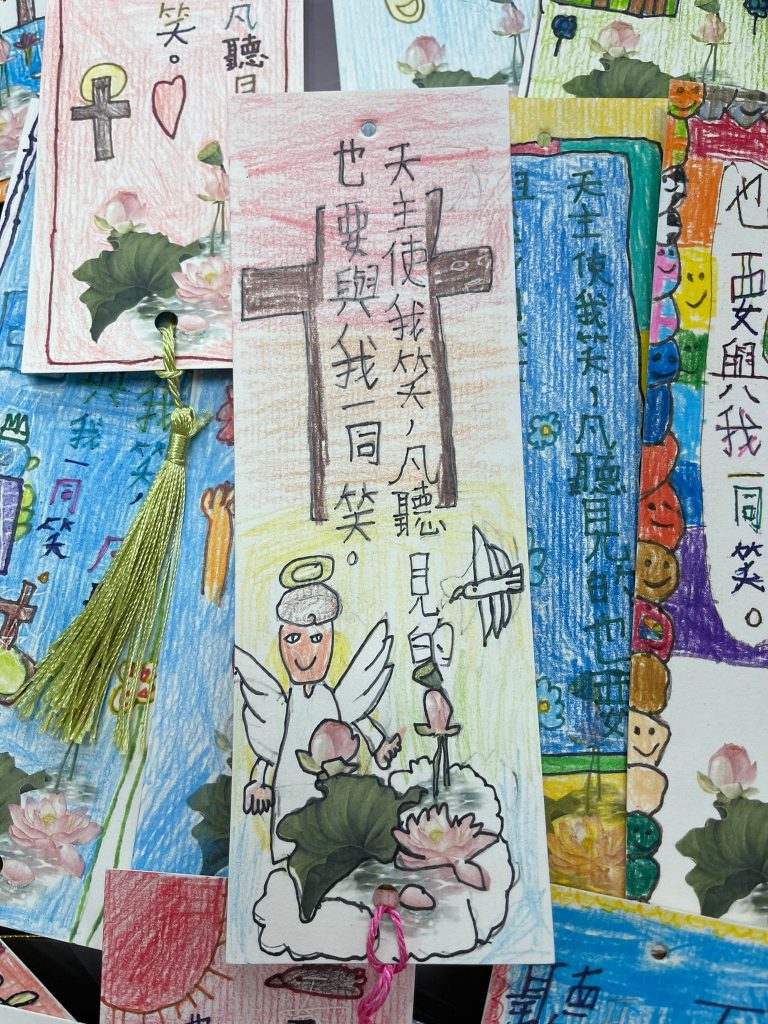 天主使我笑，凡聽見的
也要與我一同笑。
凡聽
笑。
天主使我笑，凡聽見的也要
也要與我一同笑。
我笑，
與我一同笑
聽